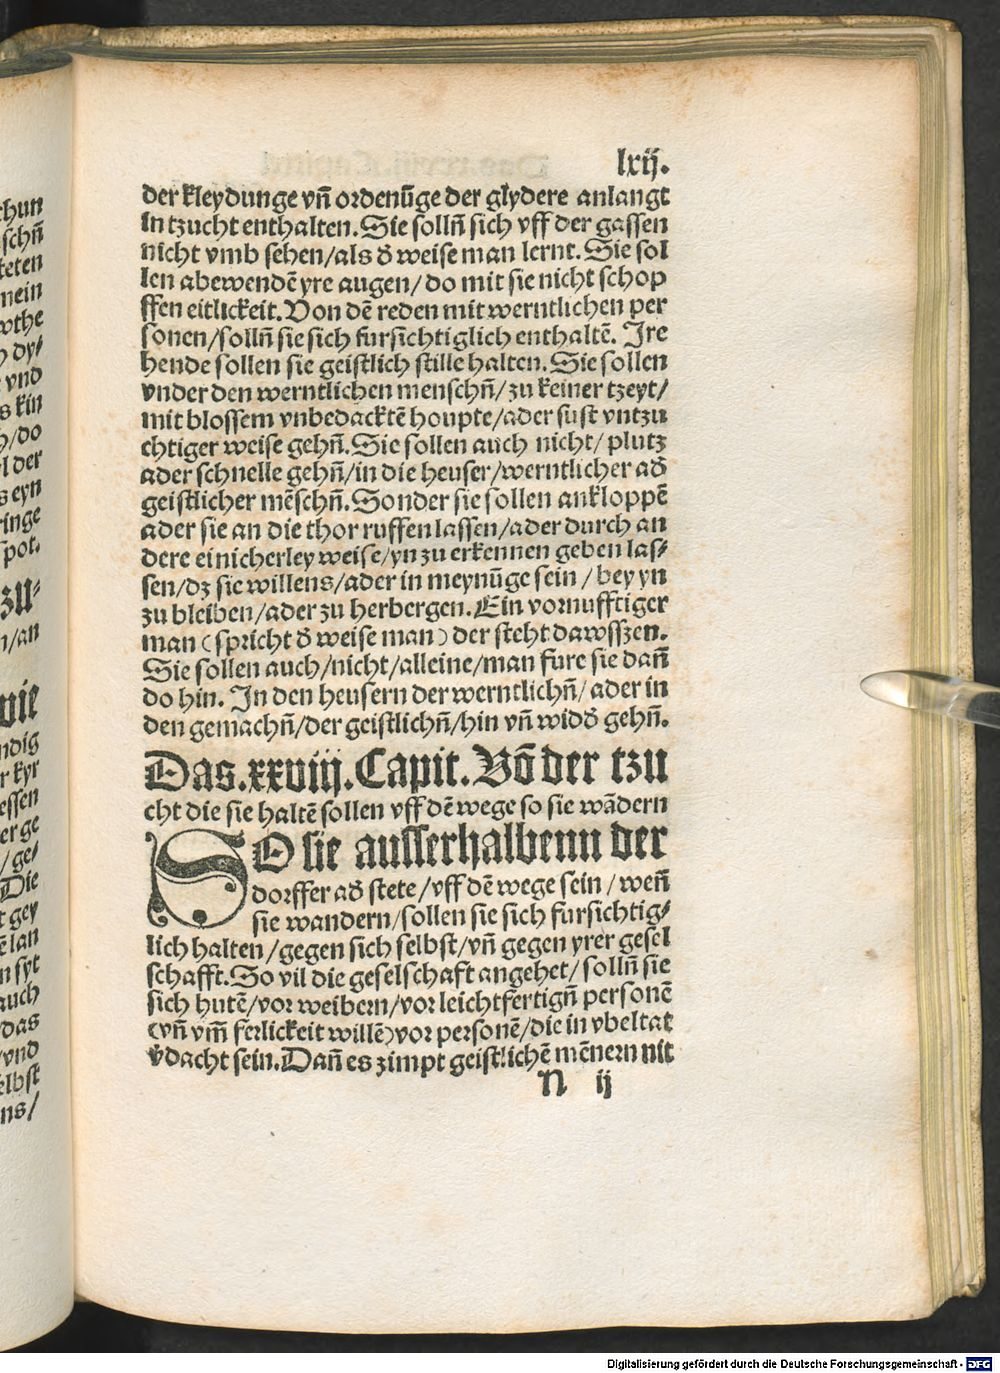 lxij.
der kleydunge vñ ordenũge der glydere anlangt
in tzucht enthalten. Sie sollñ sich vff der gassen
nicht vmb sehen/als d̕ weise man lernt. Sie sol
len abewendẽ yre augen/ do mit sie nicht schop
ffen eitlickeit. Von dẽ reden mit werntlichen per
sonen/sollñ sie sich fursichtiglich enthaltẽ. Ire
hende sollen sie geistlich stille halten. Sie sollen
vnder den werntlichen menschñ/ zu keiner tzeyt/
mit blossem vnbedacktẽ houpte/ader sust vntzu
chtiger weise gehñ. Sie sollen auch nicht/ plutz
ader schnelle gehñ/in die heuser/werntlicher ad̕
geistlicher mẽschñ. Sonder sie sollen ankloppẽ
ader sie an die thor ruffen lassen/ader durch an
dere einicherley weise/yn zu erkennen geben las/
sen/dz sie willens/ader in meynũge sein / bey yn
zu bleiben/ader zu herbergen. Ein vornufftiger
man (spricht d̕ weise man) der steht dawsszen.
Sie sollen auch/nicht/alleine/man fure sie dañ
do hin. In den heusern der werntlichñ/ ader in
den gemachñ/der geistlichñ/hin vñ wid̕ gehñ.
Das.xxviij.Capit.Võ der tzu
cht die sie haltẽ sollen vff dẽ wege so sie wãdern
SO sie ausserhalbenn der
dorffer ad̕ stete/vff dẽ wege sein / weñ
sie wandern/sollen sie sich fursichtig/
lich halten/gegen sich selbst/vñ gegen yrer gesel
schafft. So vil die geselschaft angehet/ sollñ sie
sich hutẽ/vor weibern/vor leichtfertigñ personẽ
(vñ vm̃ ferlickeit willẽ)vor personẽ/die in vbeltat
v̕dacht sein. Dañ es zimpt geistlichẽ mẽnern nit
N ij
thun
schñ
teten
mein
dy/
vnd
s kin
/do
l der
s eyn
ringe
spot.
zu/
n/an
ndig
r kyr
essen
er ge
/ge/
Die
t gey
ẽ lan
n syt
auch
das
vnd
elbst
ns/
Digitalisierung gefördert durch die Deutsche Forschungsgemeinschaft - DFG